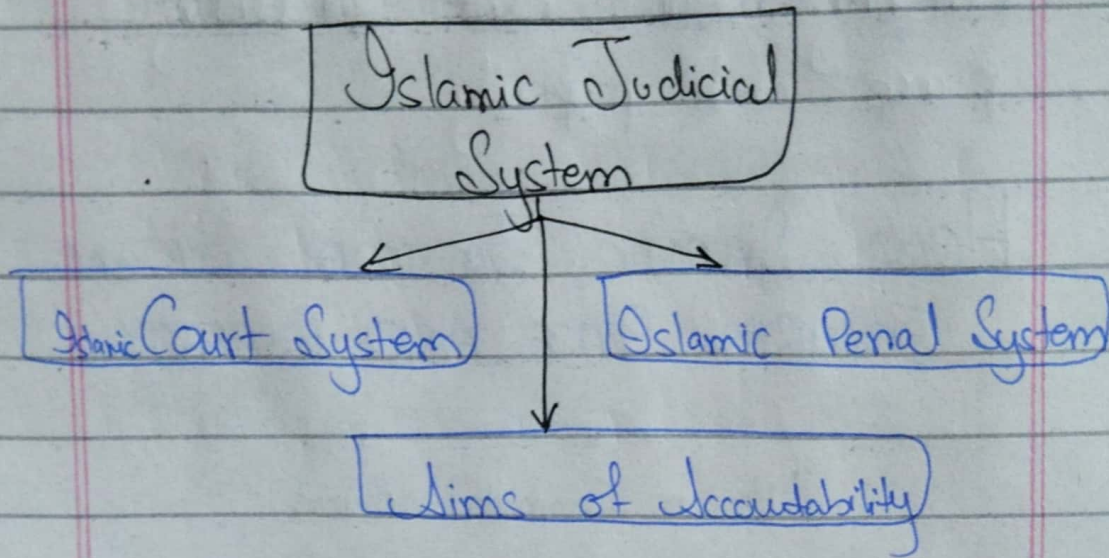 Islamic Judicial
System
Islamic Court System
Islamic Penal System
Aims of Accountability